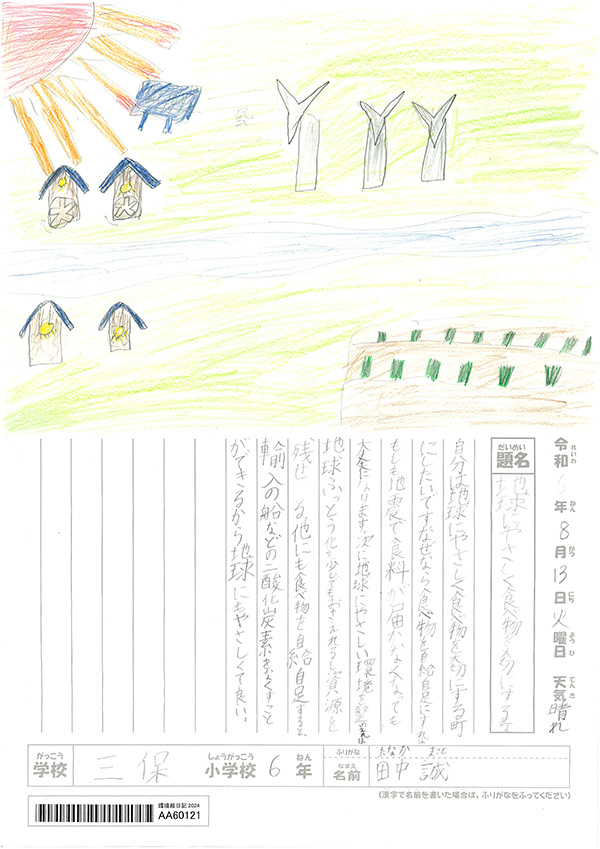 令和6年8月13日火曜日 天気晴れ
れいわ ねん がつ にち ようび てんき
だいめい
題名 地球にやさしく食べ物を大切にする町
自分は地球にやさしく食べ物を大切にする町
にしたいですなぜなら食べ物を自給自足にすれば
もしも地震で食料が届かなくなっても
大丈夫になります。次に地球にやさしい環境を
地球ふっとう化が少しでもおさえれるし資源を
残せる他にも食べ物を自給自足すると、
輸入の船などの二酸化炭素をなくすこと
ができるから地球にもやさしくて良い。
がっこう しょうがっこう ねん ふりがな たなか まこと
学校 三保 小学校 6年 なまえ 名前 田中 誠
(漢字で名前を書いた場合は、ふりがなをふってください)
環境絵日記 2024
AA60121